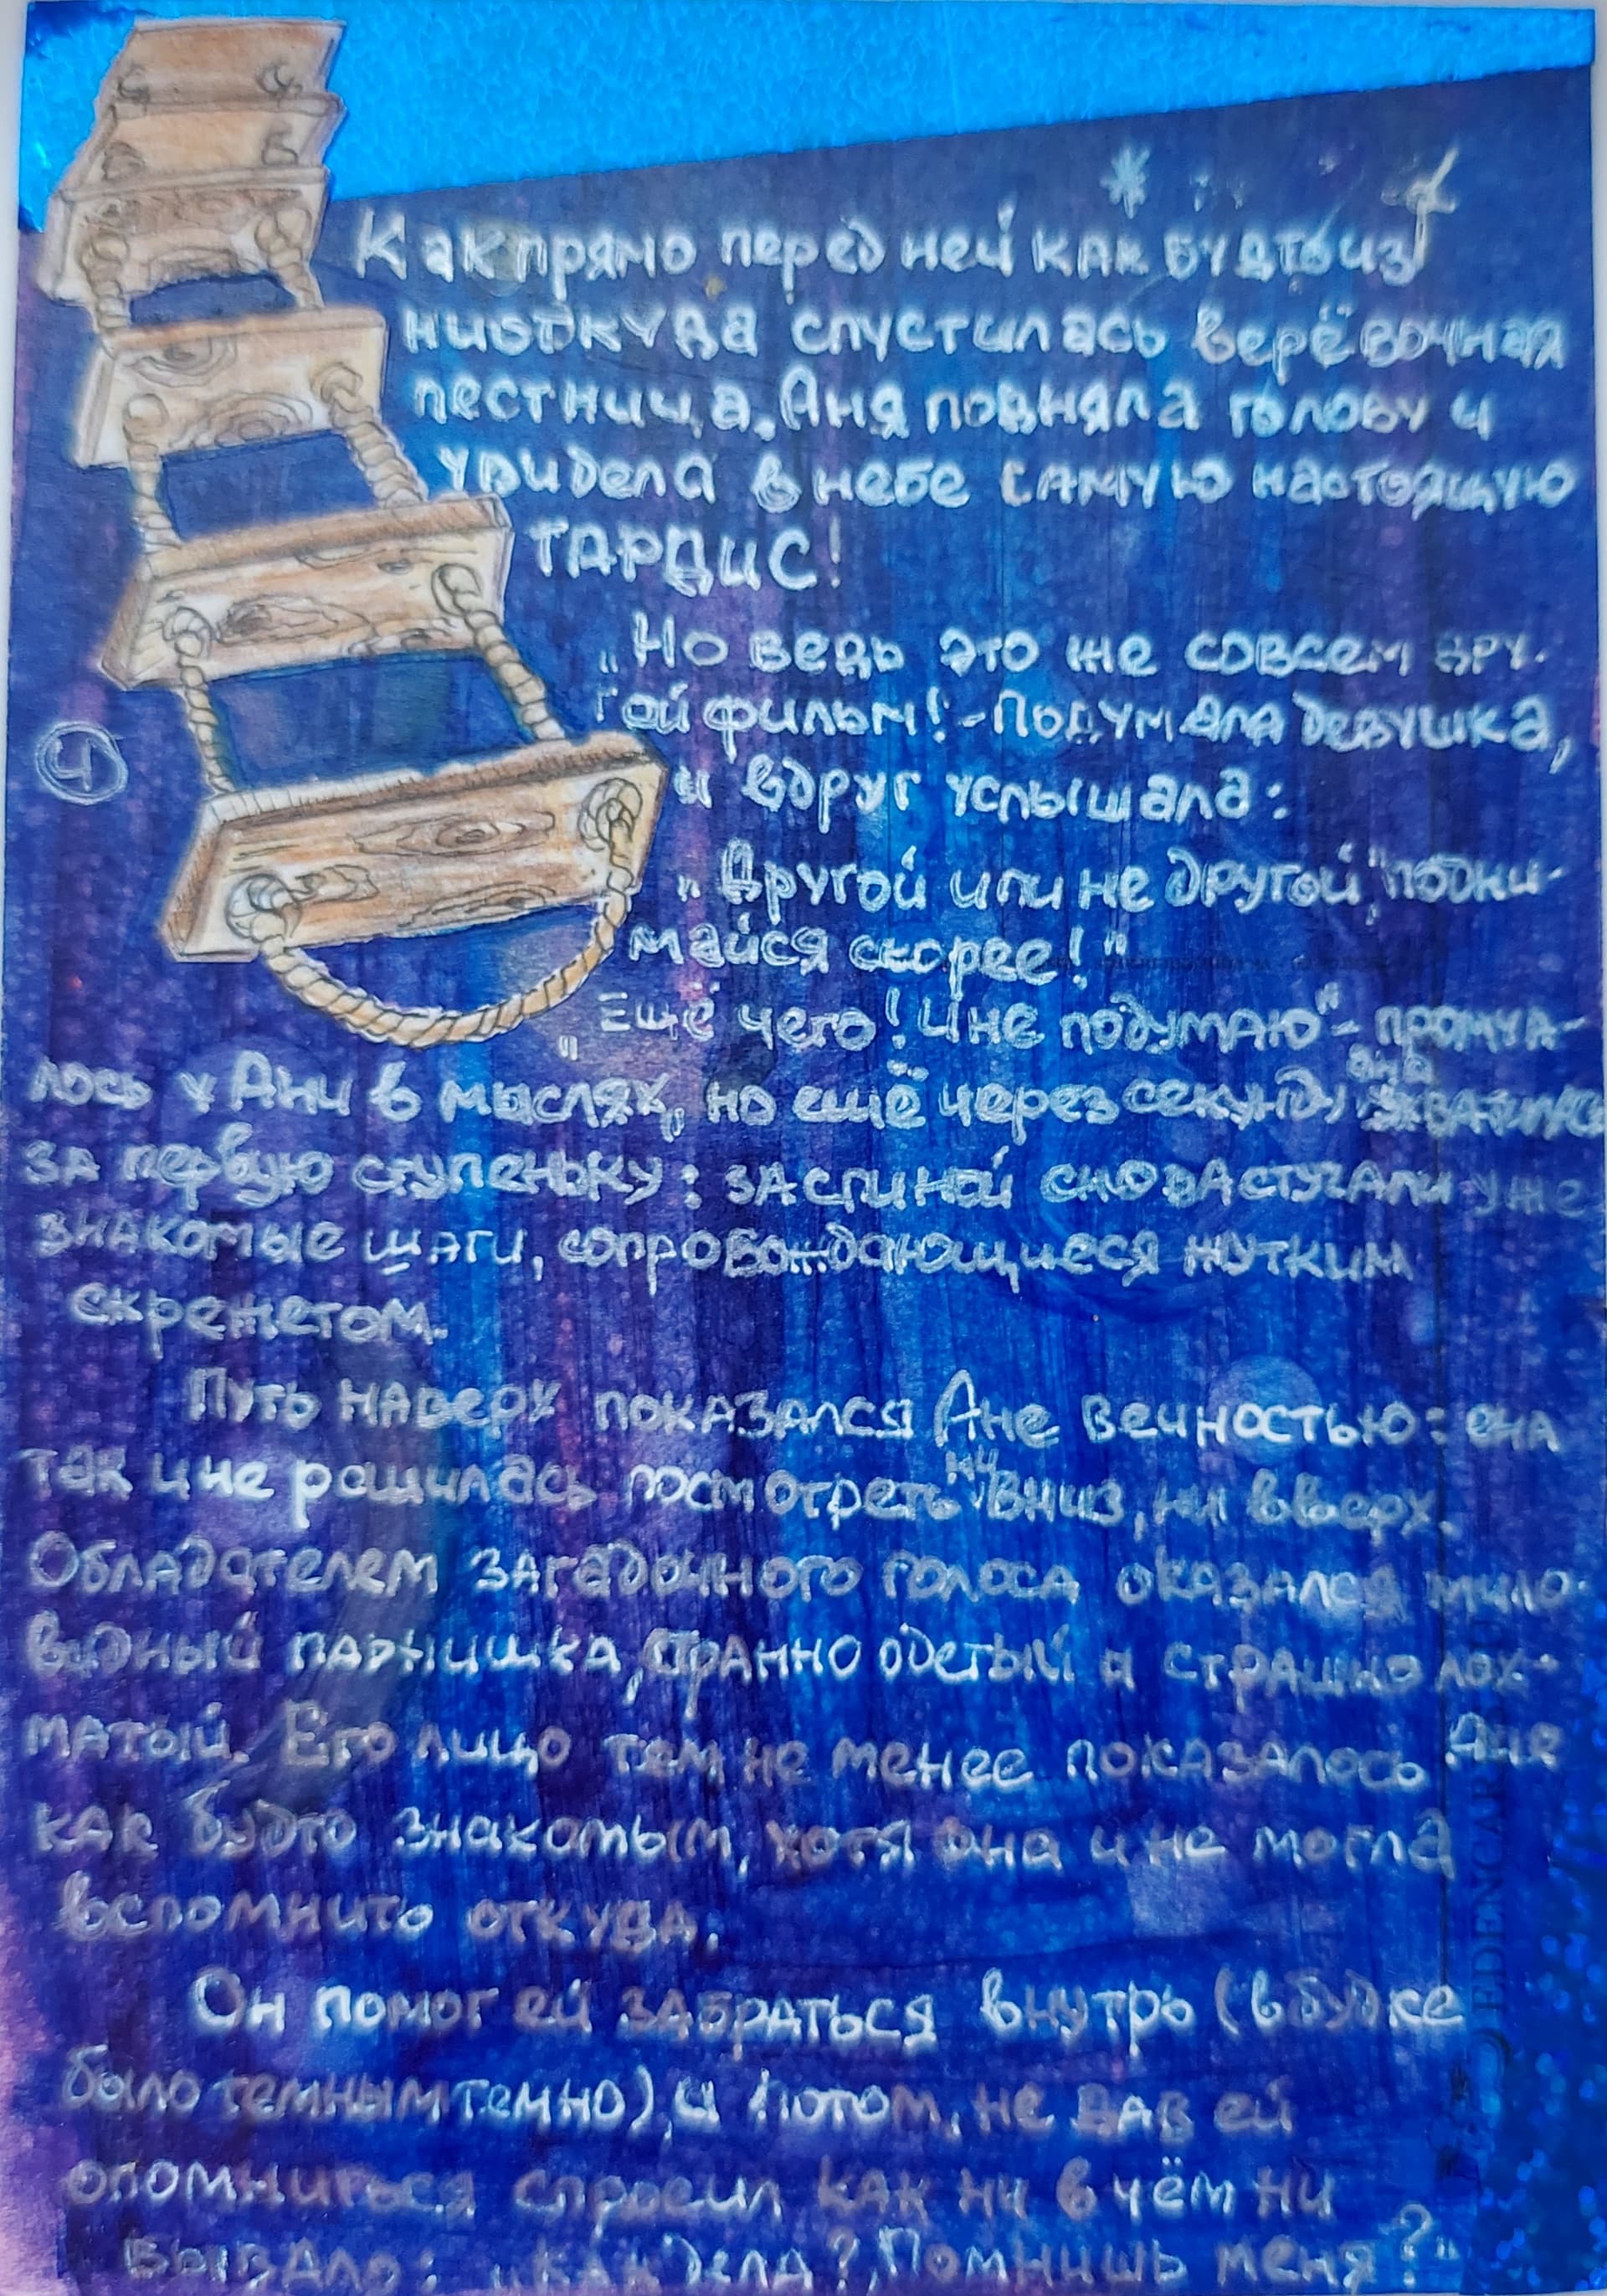 Как прямо перед ней как будто из
ниоткуда спустилась верёвочная
лестница. Аня подняла голову и
увидела в небе самую настоящую
ТАРДИС!
„Но ведь это же совсем дру-
гой фильм! - Подумала девушка,
и вдруг услышала:
„Другой или не другой, подни-
майся скорее!"
„Ещё чего! И не подумаю" - промча-
лось у Ани в мыслях, но ещё через секунду она ухватилась
за первую ступеньку: за спиной снова стучали уже
знакомые шаги, сопровождающиеся жутким
скрежетом.
④
Путь наверх показался Ане вечностью: она
так и не решилась посмотреть ни вниз, ни вверх.
Обладателем загадочного голоса оказался мило-
видный парнишка, странно одетый и страшно лох-
матый. Его лицо тем не менее показалось Ане
как будто знакомым, хотя она и не могла
вспомнить откуда.
Он помог ей забраться внутрь (в будке
было темным темно), и потом, не дав ей
опомниться спросил как ни в чём ни
бывало: „как дела? Помнишь меня?"